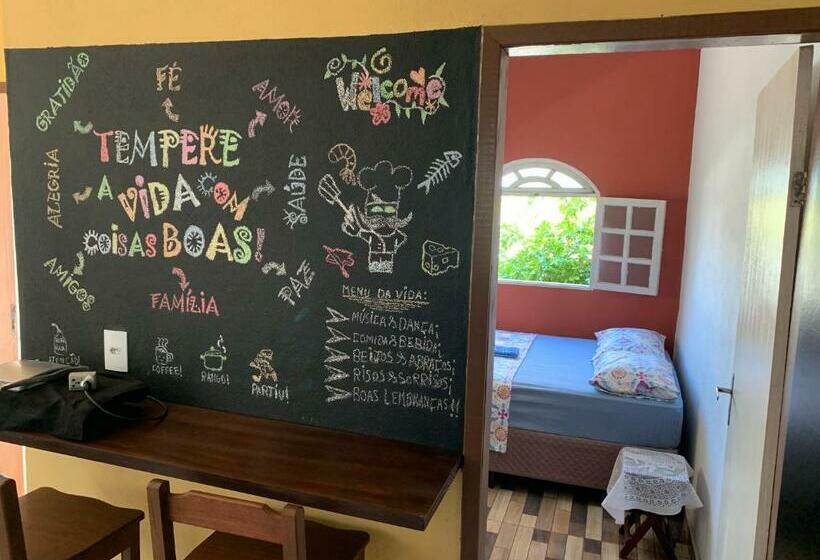 GRATIDÃO
FÉ
AMOR
Welcome
TEMPERE
A VIDA COM
COISAS BOAS!
ALEGRIA
SAÚDE
AMIGOS
PAZ
FAMÍLIA
MENU DA VIDA:
MÚSICA & DANÇA;
COMIDA & BEBIDA;
BEIJOS & ABRAÇOS;
RISOS & SORRISOS;
BOAS LEMBRANÇAS!!
COFFEE!
RANGO!
PARTIU!